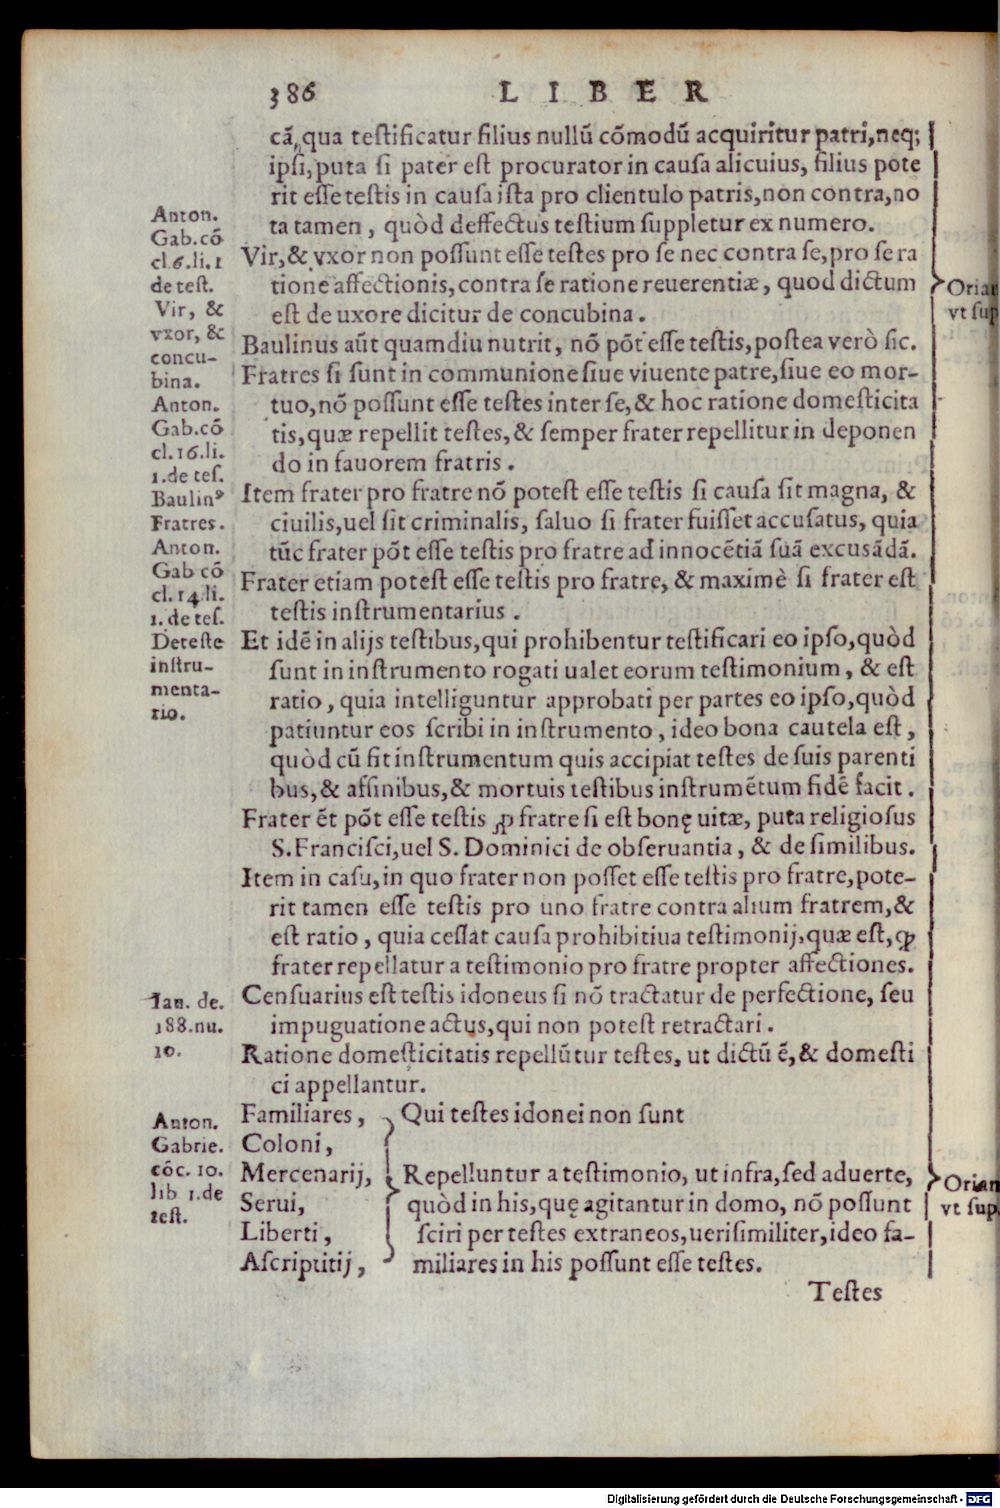 386 LIBER
cã, qua teſtificatur filius nullũ cõmodũ acquiritur patri, neq;
ipſi, puta ſi pater eſt procurator in cauſa alicuius, filius pote
rit eſſe teſtis in cauſa iſta pro clientulo patris, non contra, no
ta tamen, quòd deffectus teſtium ſuppletur ex numero.
Vir, & vxor non poſſunt eſſe teſtes pro ſe nec contra ſe, pro ſe ra
tione affectionis, contra ſe ratione reuerentiæ, quod dictum
eſt de uxore dicitur de concubina.
Baulinus aũt quamdiu nutrit, nõ põt eſſe teſtis, poſtea verò ſic.
Fratres ſi ſunt in communione ſiue viuente patre, ſiue eo mor-
tuo, nõ poſſunt eſſe teſtes inter ſe, & hoc ratione domeſticita
tis, quæ repellit teſtes, & ſemper frater repellitur in deponen
do in fauorem fratris.
Item frater pro fratre nõ poteſt eſſe teſtis ſi cauſa ſit magna, &
ciuilis, uel ſit criminalis, ſaluo ſi frater fuiſſet accuſatus, quia
tũc frater põt eſſe teſtis pro fratre ad innocẽtiã ſuã excuſãdã.
Frater etiam poteſt eſſe teſtis pro fratre, & maximè ſi frater eſt
teſtis inſtrumentarius.
Et idẽ in alijs teſtibus, qui prohibentur teſtificari eo ipſo, quòd
ſunt in inſtrumento rogati ualet eorum teſtimonium, & eſt
ratio, quia intelliguntur approbati per partes eo ipſo, quòd
patiuntur eos ſcribi in inſtrumento, ideo bona cautela eſt,
quòd cũ ſit inſtrumentum quis accipiat teſtes de ſuis parenti
bus, & affinibus, & mortuis teſtibus inſtrumẽtum fidẽ facit.
Frater ẽt põt eſſe teſtis ꝓ fratre ſi eſt bonę uitæ, puta religioſus
S. Franciſci, uel S. Dominici de obſeruantia, & de ſimilibus.
Item in caſu, in quo frater non poſſet eſſe teſtis pro fratre, pote-
rit tamen eſſe teſtis pro uno fratre contra alium fratrem, &
eſt ratio, quia ceſſat cauſa prohibitiua teſtimonij, quæ eſt, ꝙ
frater repellatur a teſtimonio pro fratre propter affectiones.
Cenſuarius eſt teſtis idoneus ſi nõ tractatur de perfectione, ſeu
impuguatione actus, qui non poteſt retractari.
Ratione domeſticitatis repellũtur teſtes, ut dictũ ẽ, & domeſti
ci appellantur.
Familiares,
Coloni,
Mercenarij,
Serui,
Liberti,
Aſcriptitij,
Qui teſtes idonei non ſunt
Repelluntur a teſtimonio, ut infra, ſed aduerte,
quòd in his, quę agitantur in domo, nõ poſſunt
ſciri per teſtes extraneos, ueriſimiliter, ideo fa-
miliares in his poſſunt eſſe teſtes.
Teſtes
Anton.
Gab. cõ
cl. 6. li. 1
de teſt.
Vir, &
vxor, &
concu-
bina.
Anton.
Gab. cõ
cl. 16. li.
1. de teſ.
Baulinꝰ
Fratres.
Anton.
Gab cõ
cl. 14 li.
1. de teſ.
De teſte
inſtru-
menta-
rio.
Ian. de.
188. nu.
10.
Anton.
Gabrie.
cõc. 10.
lib 1. de
teſt.
Orian
vt ſup
Orian
vt ſup.
Digitalisierung gefördert durch die Deutsche Forschungsgemeinschaft - DFG